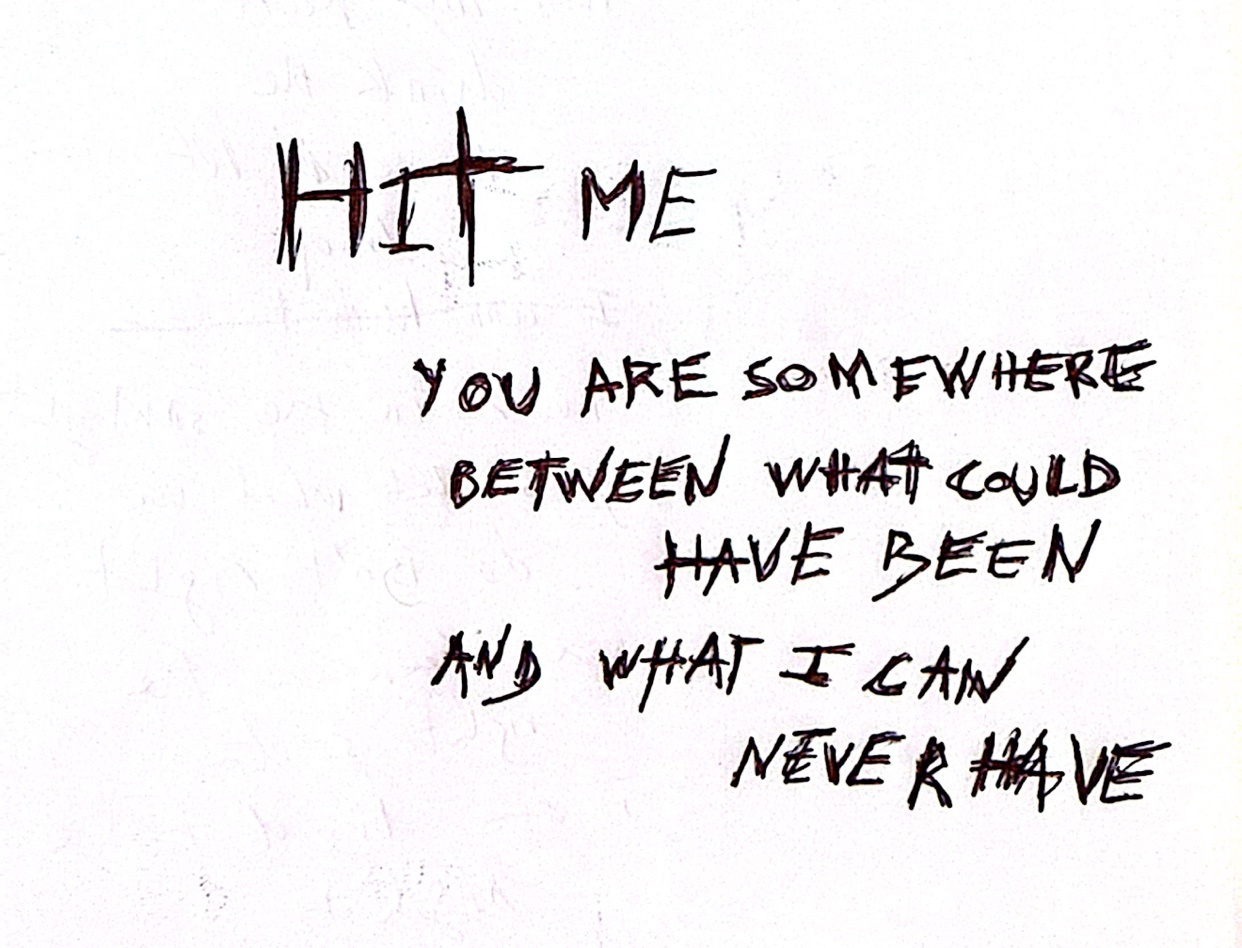 HIT ME
YOU ARE SOMEWHERE
BETWEEN WHAT COULD
HAVE BEEN
AND WHAT I CAN
NEVER HAVE